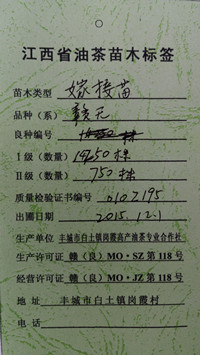 江西省油茶苗木标签
苗木类型 嫁接苗
品种(系) 赣无
良种编号
Ⅰ级(数量) 19250株
Ⅱ级(数量) 750株
质量检验证书编号 0107195
出圃日期 2015.12.1
生产单位 丰城市白土镇岗霞高产油茶专业合作社
生产许可证 赣(良)MO·SZ第118号
经营许可证 赣(良)MO·JZ第118号
地址 丰城市白土镇岗霞村
电话